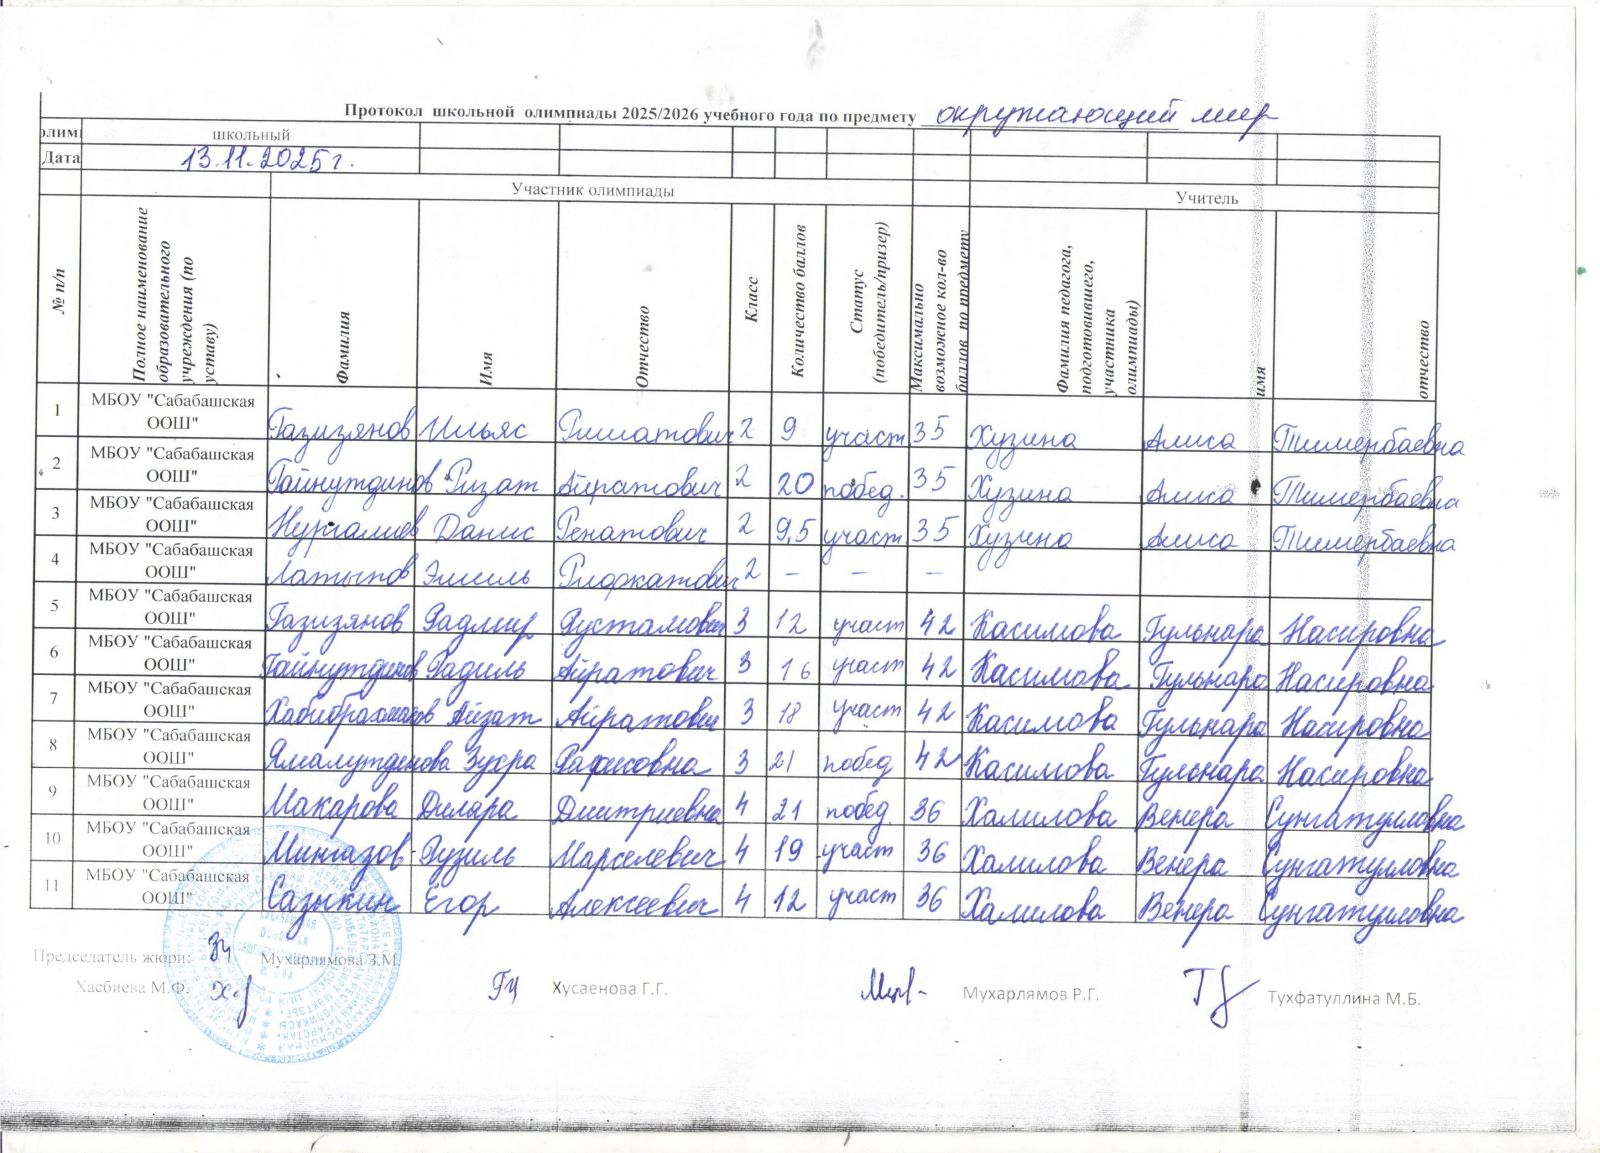 Протокол школьной олимпиады 2025/2026 учебного года по предмету окружающий мир
олим школьный
Дата 13.11.2025г.
Участник олимпиады Учитель
№ п/п Полное наименование образовательного учреждения (по уставу) Фамилия Имя Отчество Класс Количество баллов Статус (победитель/призер) Максимально возможное кол-во баллов по предмету Фамилия педагога, подготовившего, участника олимпиады) имя отчество
1 МБОУ "Сабабашская ООШ" Газизянов Ильяс Ришатович 2 9 участ 35 Хузина Алиса Тимербаевна
2 МБОУ "Сабабашская ООШ" Гайнутдинов Ризат Айратович 2 20 побед. 35 Хузина Алиса Тимербаевна
3 МБОУ "Сабабашская ООШ" Нургалиев Данис Ренатович 2 9,5 участ 35 Хузина Алиса Тимербаевна
4 МБОУ "Сабабашская ООШ" Латыпов Эмиль Рифкатович 2 – – –
5 МБОУ "Сабабашская ООШ" Газизянов Радмир Рустамович 3 12 участ 42 Касимова Гульнара Насировна
6 МБОУ "Сабабашская ООШ" Гайнутдинов Радиль Айратович 3 16 участ 42 Касимова Гульнара Насировна
7 МБОУ "Сабабашская ООШ" Хабибрахманов Айзат Айратович 3 18 участ 42 Касимова Гульнара Насировна
8 МБОУ "Сабабашская ООШ" Ямалутдинова Зухра Рафисовна 3 21 побед 42 Касимова Гульнара Насировна
9 МБОУ "Сабабашская ООШ" Макарова Диляра Дмитриевна 4 21 побед. 36 Халилова Венера Сунгатулловна
10 МБОУ "Сабабашская ООШ" Мингазов Рузиль Марселевич 4 19 участ 36 Халилова Венера Сунгатулловна
11 МБОУ "Сабабашская ООШ" Сазыкин Егор Алексеевич 4 12 участ 36 Халилова Венера Сунгатулловна
Председатель жюри: Мухарлямова З.М.
Хасбиева М.Ф. Хусаенова Г.Г. Мухарлямов Р.Г. Тухфатуллина М.Б.